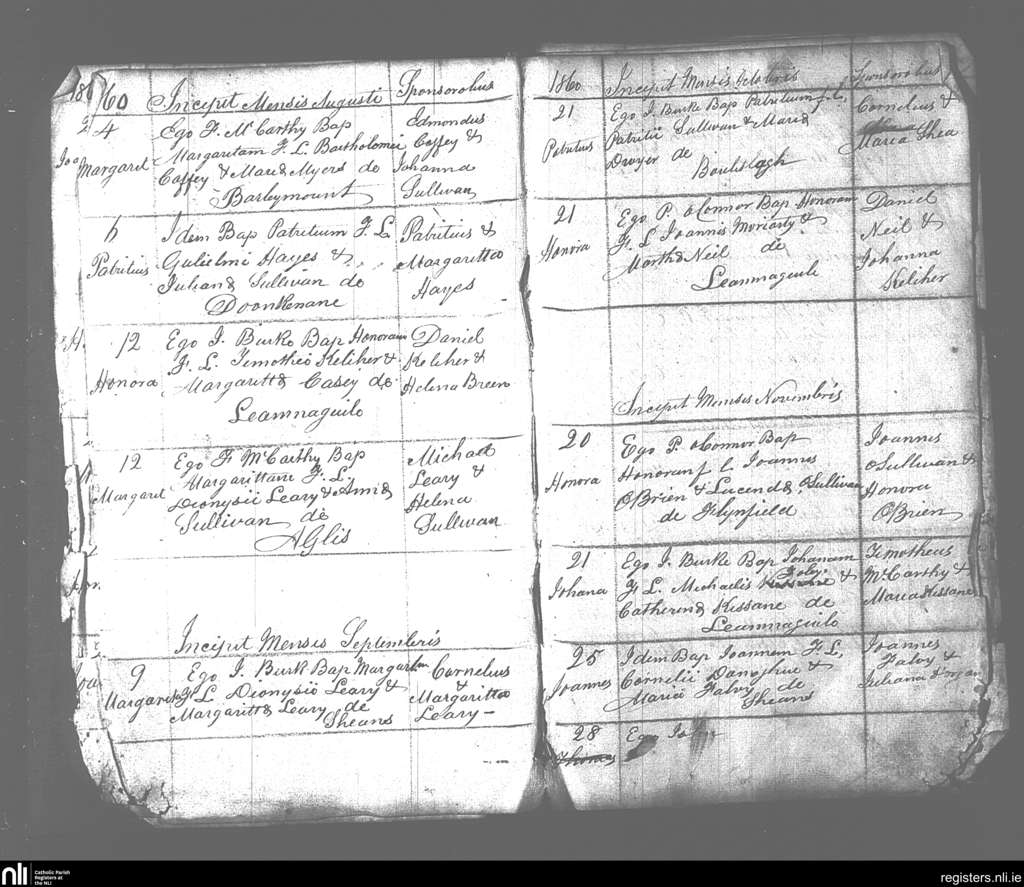 1860 Incipit Mensis Augusti Sponsoribus
4 Ego F. McCarthy Bap Edmondus
Margaret Margaritam F. L. Bartholomei Coffey &
Coffey & Maria Myers de Johanna
Barleymount Sullivan
6 Idem Bap Patritium F. L. Patritius &
Patritius Gulielmi Hayes & Margaritta
Juliana Sullivan de Hayes
Doonkenane
12 Ego J. Burke Bap Honoram Daniel
F. L. Timothio Keliher & Keleher &
Honora Margaritta Casey de Helena Breen
Leamnaguilo
12 Ego F McCarthy Bap Michael
Margarittam F. L. Leary &
Margaret Dionysii Leary & Anna Helena
Sullivan de Sullivan
AGlis
Incipit Mensis Septembris
9 Ego J. Burk Bap Margaritam Cornelius
Margaret F L Dionysio Leary & &
Margaritta Leary de Margaritta
Sheans Leary
1860 Incipit Mensis Octobris Sponsoribus
21 Ego J. Burke Bap Patritium f. L. Cornelius &
Patritius Patritii Sullivan & Maria
Dwyer de Maria Shea
21 Ego P. oConnor Bap Honoram Daniel
Honora F. L Joannis Moriarty & Neil &
Martha Neil de Johanna
Leamnaguili Keliher
Incipit Mensis Novembris
20 Ego P. oConnor Bap Joannis
Honora Honoram f L Joannis OSullivan &
OBrien & Lucinda OSullivan Honora
de Flynfield OBrien
21 Ego J. Burke Bap Johanam Timotheus
Johana F L. Michaelis Foley & McCarthy &
Catherina Kissane de Maria Kissane
Leamnaguilo
25 Idem Bap Joannem F L, Joannes
Joannes Cornelii Donoghue & Falvy &
Maria Falvy de Juliana
Sheans
28 Ego John
nli
Catholic Parish
Registers at
the NLI
registers.nli.ie